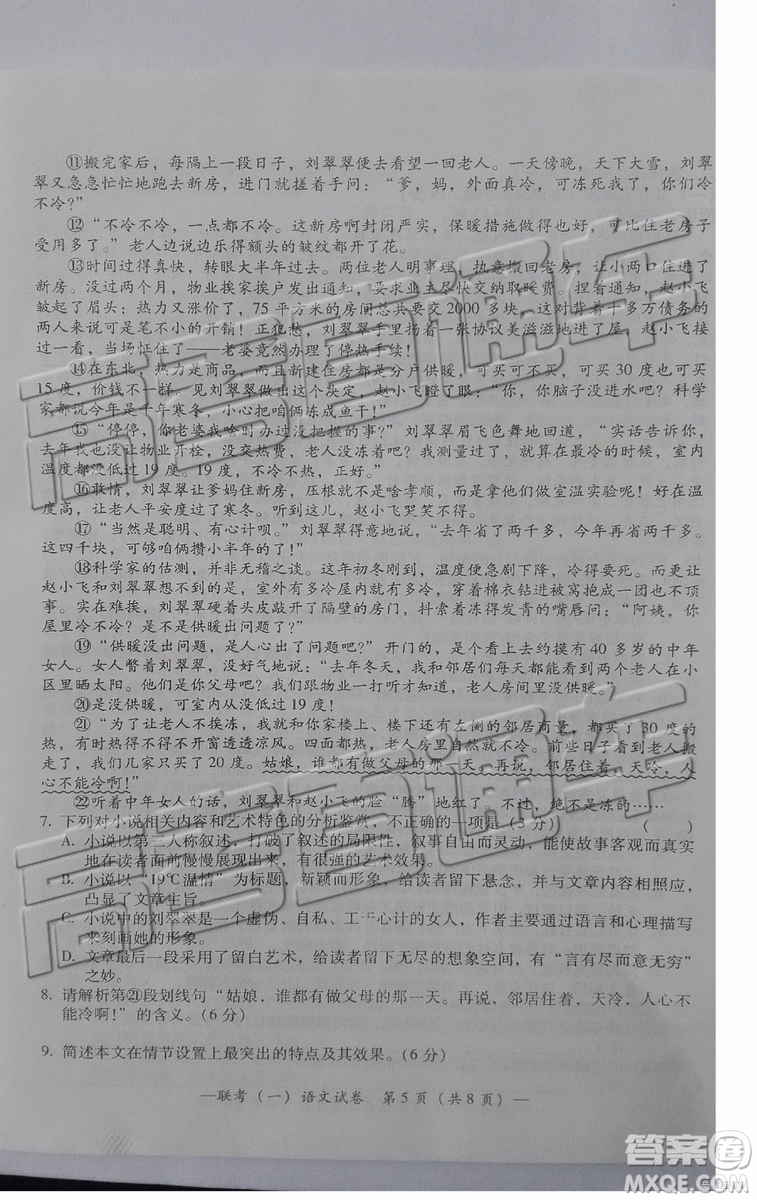 ⑪搬完家后，每隔上一段日子，刘翠翠便去看望一回老人。一天傍晚，天下大雪，刘翠
翠又急急忙忙地跑去新房，进门就搓着手问：“爹，妈，外面真冷，可冻死我了，你们冷
不冷？”
⑫“不冷不冷，一点都不冷。这新房啊封闭严实，保暖措施做得也好，可比住老房子
受用多了。”老人边说边乐得额头的皱纹都开了花。
⑬时间过得真快，转眼大半年过去。两位老人明事理，执意搬回老房，让小两口住进新
房。没过两个月，物业挨家挨户发出通知，要求业主尽快交纳取暖费。捏着通知，赵小飞
皱起了眉头：热力又涨价了，75 平方米的房间总共要交 2000 多块，这对背着十多万债务的
两人来说可是笔不小的开销！正犯愁，刘翠翠手里扬着一张协议美滋滋地进了屋，赵小飞接
过一看，当场怔住了——老婆竟然办理了停热手续！
⑭在东北，热力是商品，而且新建住房都是分户供暖，可买可不买，可买 30 度也可买
15 度，价钱不一样。见刘翠翠做出这个决定，赵小飞瞪了眼：“你，你脑子没进水吧？科学
家都说今年是千年寒冬，小心把咱俩冻成鱼干！”
⑮“停停，你老婆我啥时办过没把握的事？”刘翠翠眉飞色舞地回道，“实话告诉你，
去年我也没让物业开栓，没交热费，老人没冻着吧？我测量过了，就在最冷的时候，室内
温度都没低过 19 度。19 度，不冷不热，正好。”
⑯敢情，刘翠翠让爹妈住新房，压根就不是啥孝顺，而是让他们做室温实验呢！好在温
度高，让老人平安度过了寒冬。听到这儿，赵小飞哭笑不得。
⑰“当然是聪明、有心计呗。”刘翠翠得意地说，“去年省了两千多，今年再省两千多。
这四千块，可够咱俩攒小半年的了！”
⑱科学家的估测，并非无稽之谈。这年初冬刚到，温度便急剧下降，冷得要死。更让
赵小飞和刘翠翠想不到的是，室外有多冷屋内就有多冷，穿着棉衣钻进被窝捂也不顶
事。实在难挨，刘翠翠硬着头皮敲开了隔壁的房门，抖索着冻得发青的嘴唇问：“阿姨，你
屋里冷不冷？是不是供暖出问题了？”
⑲“供暖没出问题，是人心出了问题。”开门的，是个看上去约摸有 40 多岁的中年
女人。女人瞥着刘翠翠，没好气地说：“去年冬天，我和邻居们每天都能看到两个老人在小
区里晒太阳。他们是你父母吧？我们跟物业一打听才知道，老人房间里没供暖。”
⑳是没供暖，可室内从没低过 19 度！
㉑“为了让老人不挨冻，我和你家楼上、楼下还有左侧的邻居商量，都买了 30 度的
热，有事没事还不时开窗透透凉风。四面全热，老人房里自然就不冷。前些日子看到老人搬
走了，我们几家只买了 20 度。姑娘，谁都有做父母的那一天。再说，邻居住着，天冷，人
心不能冷啊！”
㉒听着中年女人的话，刘翠翠和赵小飞的脸“腾”地红了。不过，绝不是冻的……
7. 下列对小说相关内容和艺术特色的分析鉴赏，不正确的一项是（3 分）（　　）
A. 小说以第三人称叙述，打破了叙述的局限性，叙事自由灵活，使故事客观而真实
地在读者面前慢慢展现出来，有很强的艺术效果。
B. 小说以“19℃温情”为标题，新颖而形象，给读者留下悬念，并与文章内容相应，
凸显了文章主旨。
C. 小说中的刘翠翠是一个虚伪、自私、工于心计的女人，作者主要通过语言和心理描写
来刻画她的形象。
D. 文章最后一段采用了留白艺术，给读者留下无尽的想象空间，有“言有尽而意无穷”
之妙。
8. 请解析第㉑段划线句“姑娘，谁都有做父母的那一天。再说，邻居住着，天冷，人心不
能冷啊！”的含义。（6 分）
9. 简述本文在情节设置上最突出的特点及其效果。（6 分）
—联考（一）语文试卷　第 5 页（共 8 页）—
高考直通车
高考直通车
高考直通车
答案圈
MXQE.COM